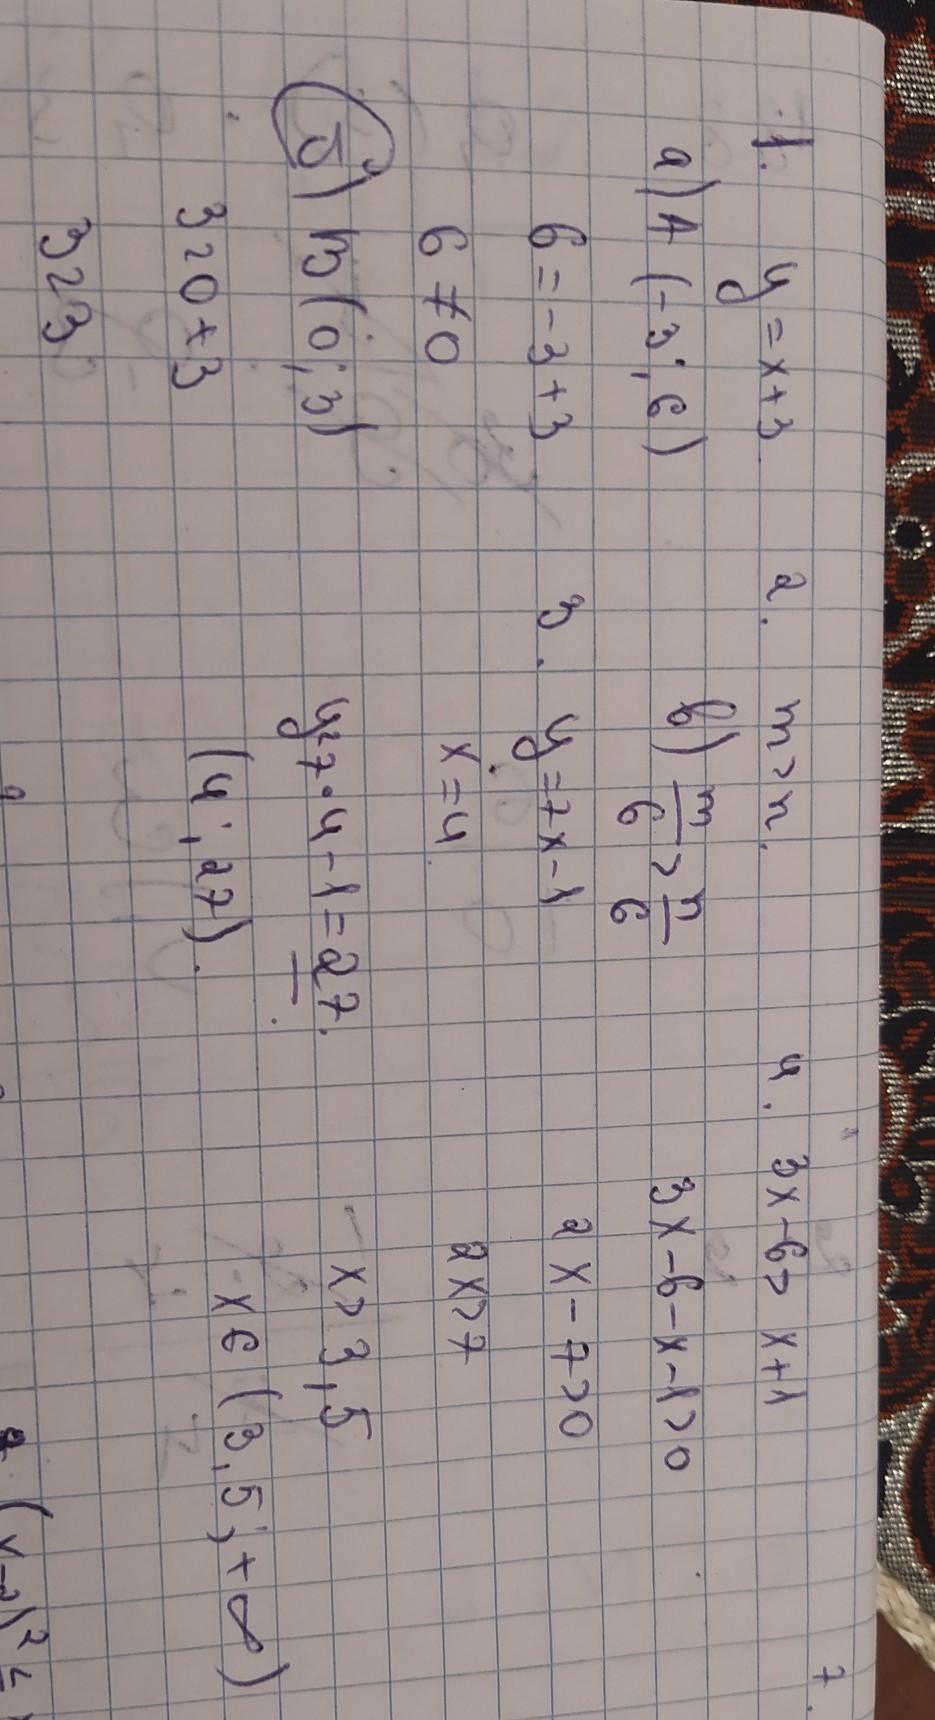 1. y = x + 3
а) A (-3; 6)
6 = -3 + 3
6 ≠ 0
б) B (0; 3)
3 = 0 + 3
3 = 3
2. m > n.
б) m/6 > n/6
3. y = 7x - 1
x = 4
y = 7 · 4 - 1 = 27.
(4; 27).
4. 3x - 6 > x + 1
3x - 6 - x - 1 > 0
2x - 7 > 0
2x > 7
x > 3,5
x ∈ (3,5; +∞)
7.